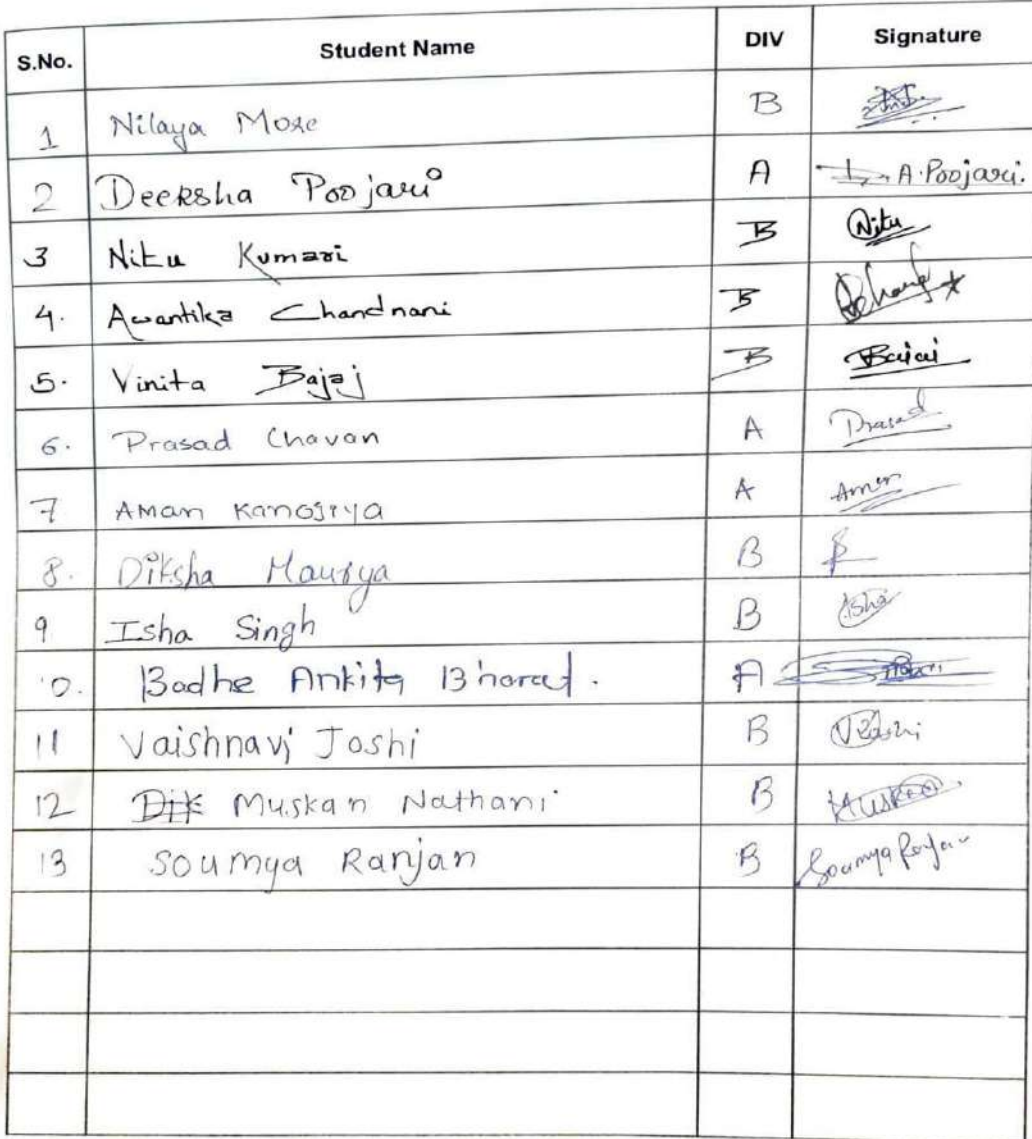 S.No. Student Name DIV Signature
1 Nilaya More B
2 Deeksha Poojari A A.Poojari.
3 Nitu Kumari B Nitu
4. Avantika Chandnani B
5. Vinita Bajaj B Bajaj
6. Prasad Chavan A Prasad
7 AMan Kanojiya A Aman
8. Diksha Maurya B
9 Isha Singh B Isha
10. Badhe Ankita Bharat. A
11 Vaishnavi Joshi B VJoshi
12 Dik Muskan Nathani B Muskan
13 Soumya Ranjan B Soumya Ranjan